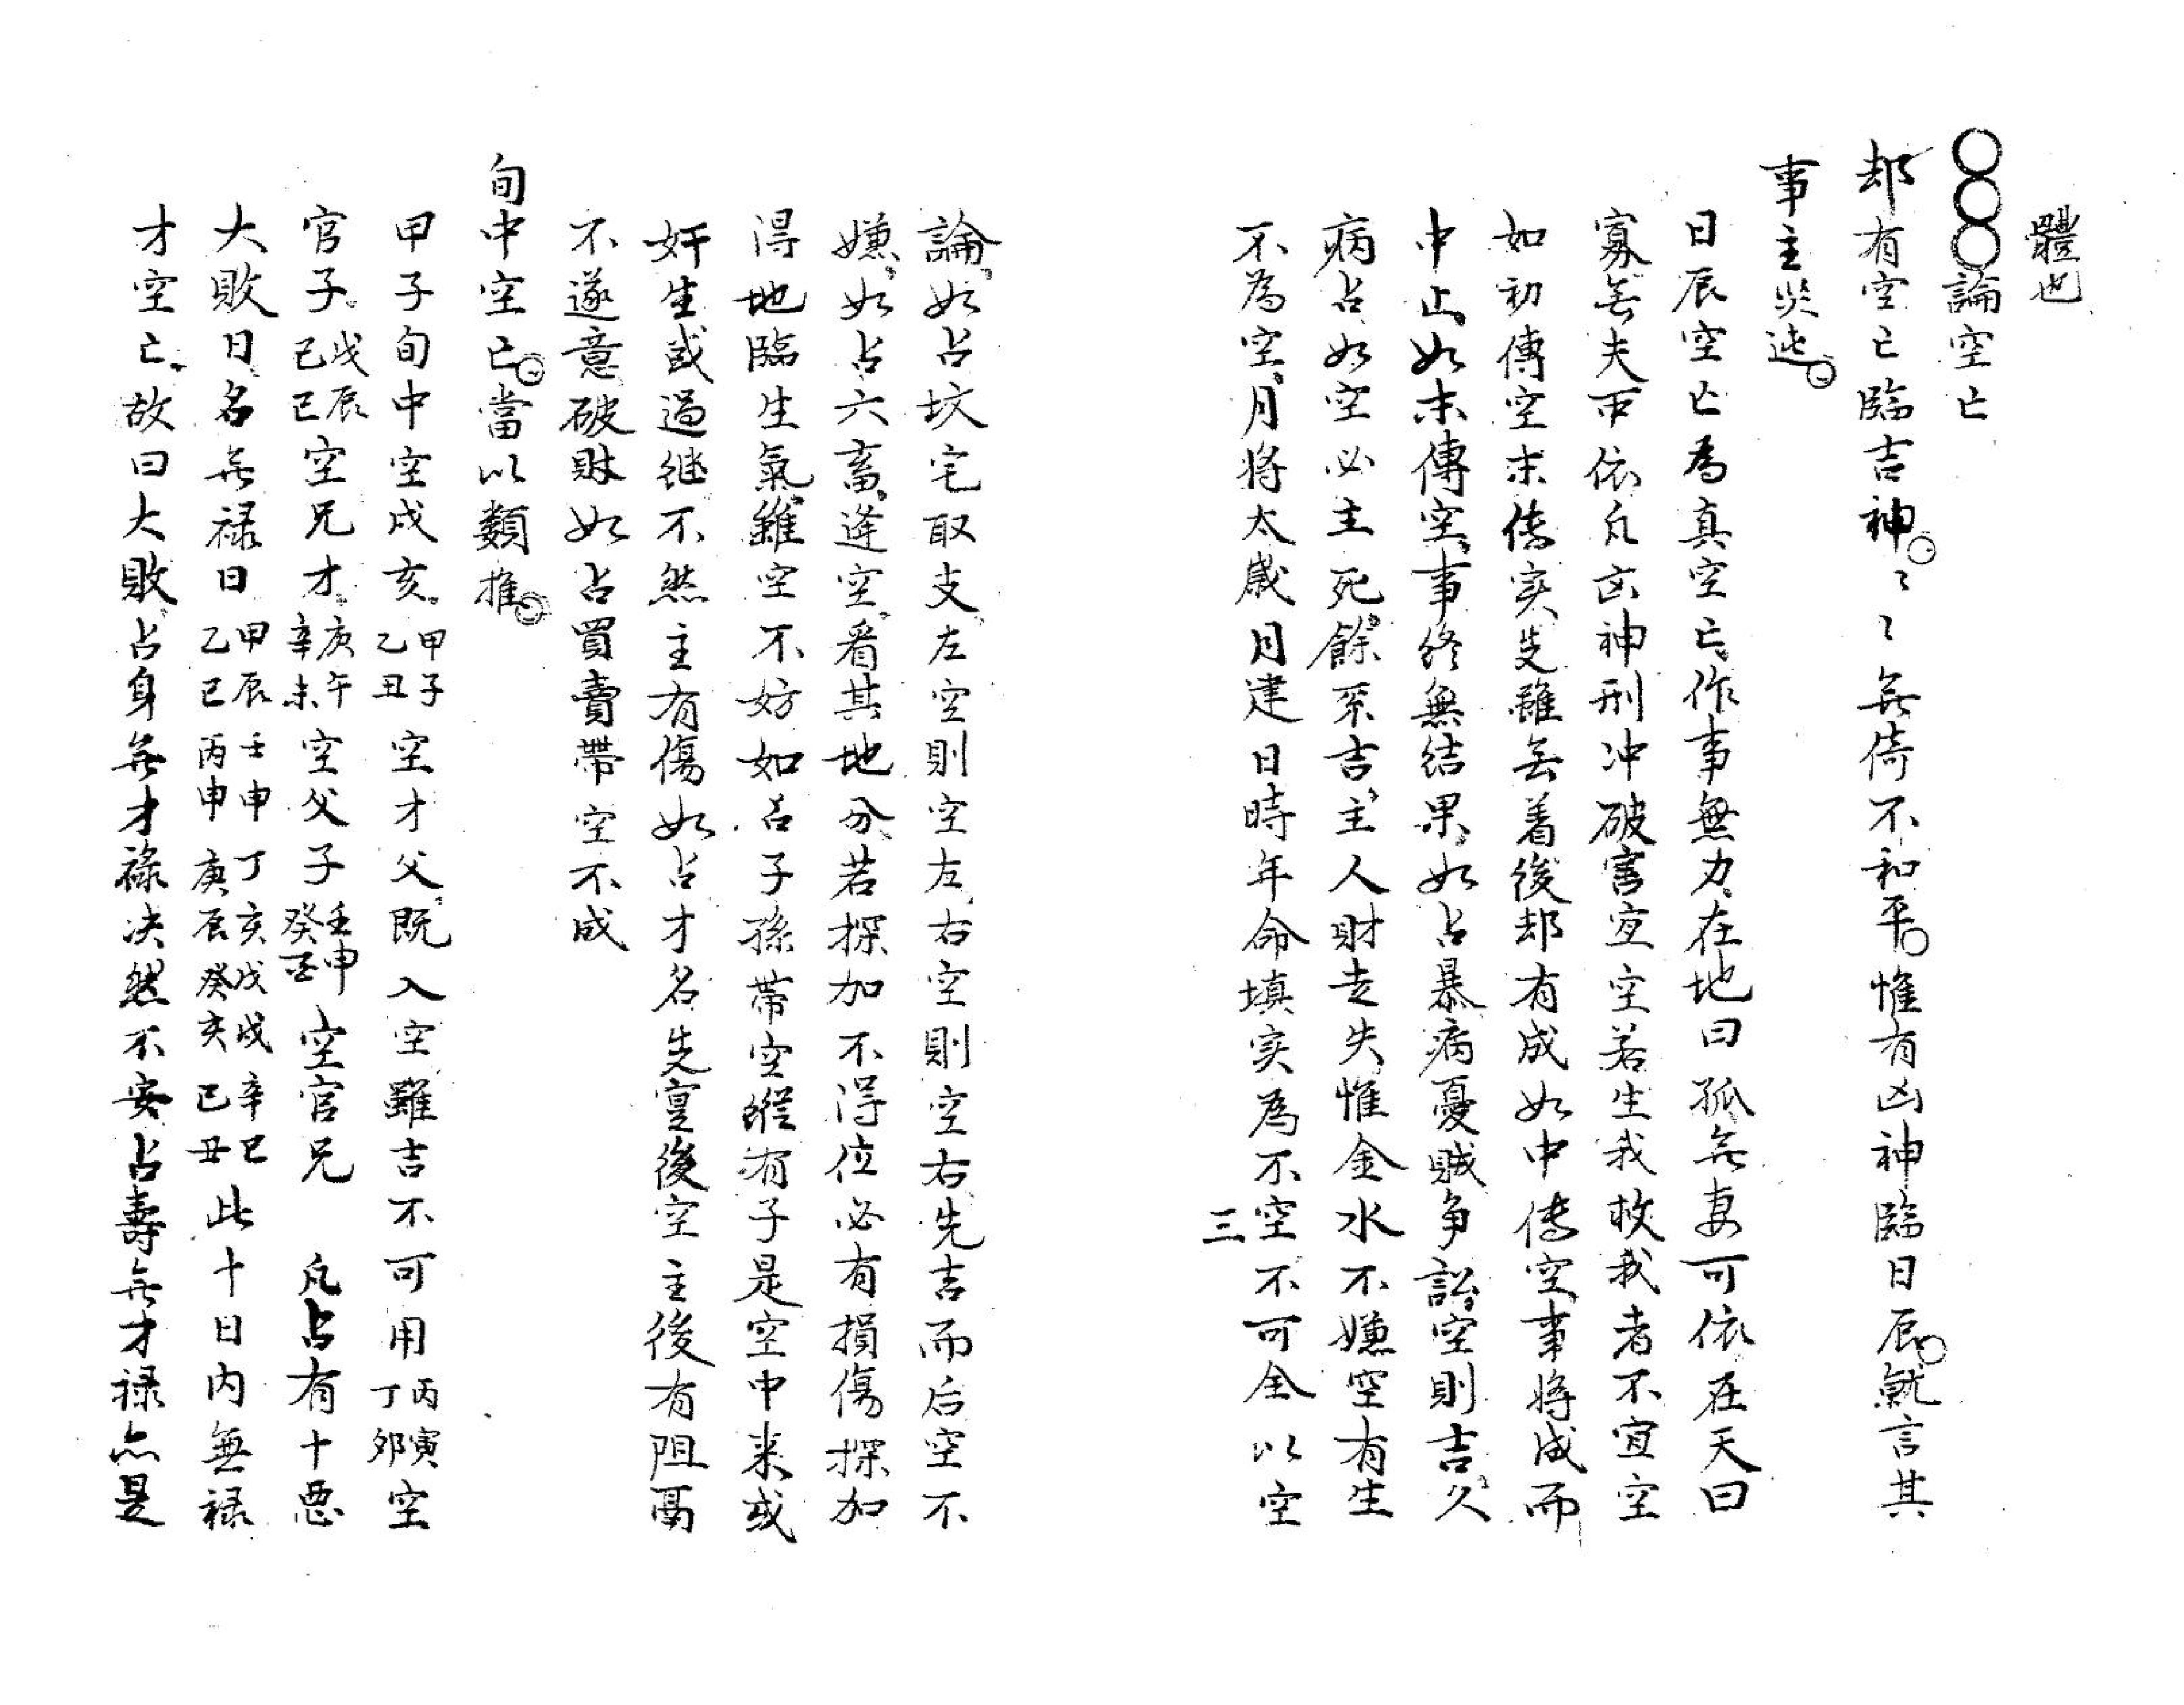 體也
〇〇〇論空亡
却有空亡臨吉神〻〻無倚不和平惟有凶神臨日辰就言其
事主災迍
日辰空亡為真空亡作事無力在地曰孤無妻可依在天曰
寡無夫可依凡凶神刑冲破害宜空若生我救我者不宜空
如初傳空末传实先雖無着後却有成如中传空事将成而
中止如末傳空事終無結果如占暴病憂賊争訟空則吉久
病占如空必主死餘不吉主人財走失惟金水不嫌空有生
不為空月将太歳月建日時年命填实為不空不可全以空
三
論如占坟宅取支左空則空左右空則空右先吉而后空不
嫌如占六畜逢空看其地分若探加不得位必有損傷探加
得地臨生氣雖空不妨如占子孫帶空縱有子是空中来或
奸生或過继不然主有傷如占才名先寔後空主後有阻鬲
不遂意破財如占買賣帶空不成
旬中空亡當以類推
甲子旬中空戌亥甲子乙丑空才父既入空雖吉不可用丙寅丁卯空
官子戊辰己巳空兄才庚午辛未空父子壬申癸酉空官兄 凡占有十惡
大敗日名無禄日甲辰乙巳壬申丙申丁亥庚辰戊戌癸亥辛巳己丑此十日内無禄
才空亡故曰大敗占身無才祿决然不安占壽無才禄亦是